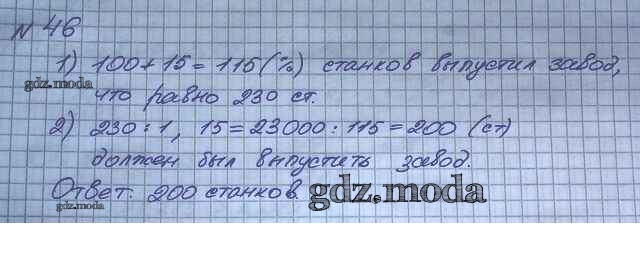 № 46
1) 100 + 15 = 115 (%) станков выпустил завод,
gdz.moda
что равно 230 ст.
2) 230 : 1, 15 = 23000 : 115 = 200 (ст)
должен был выпустить завод.
Ответ: 200 станков.
gdz.moda
gdz.moda